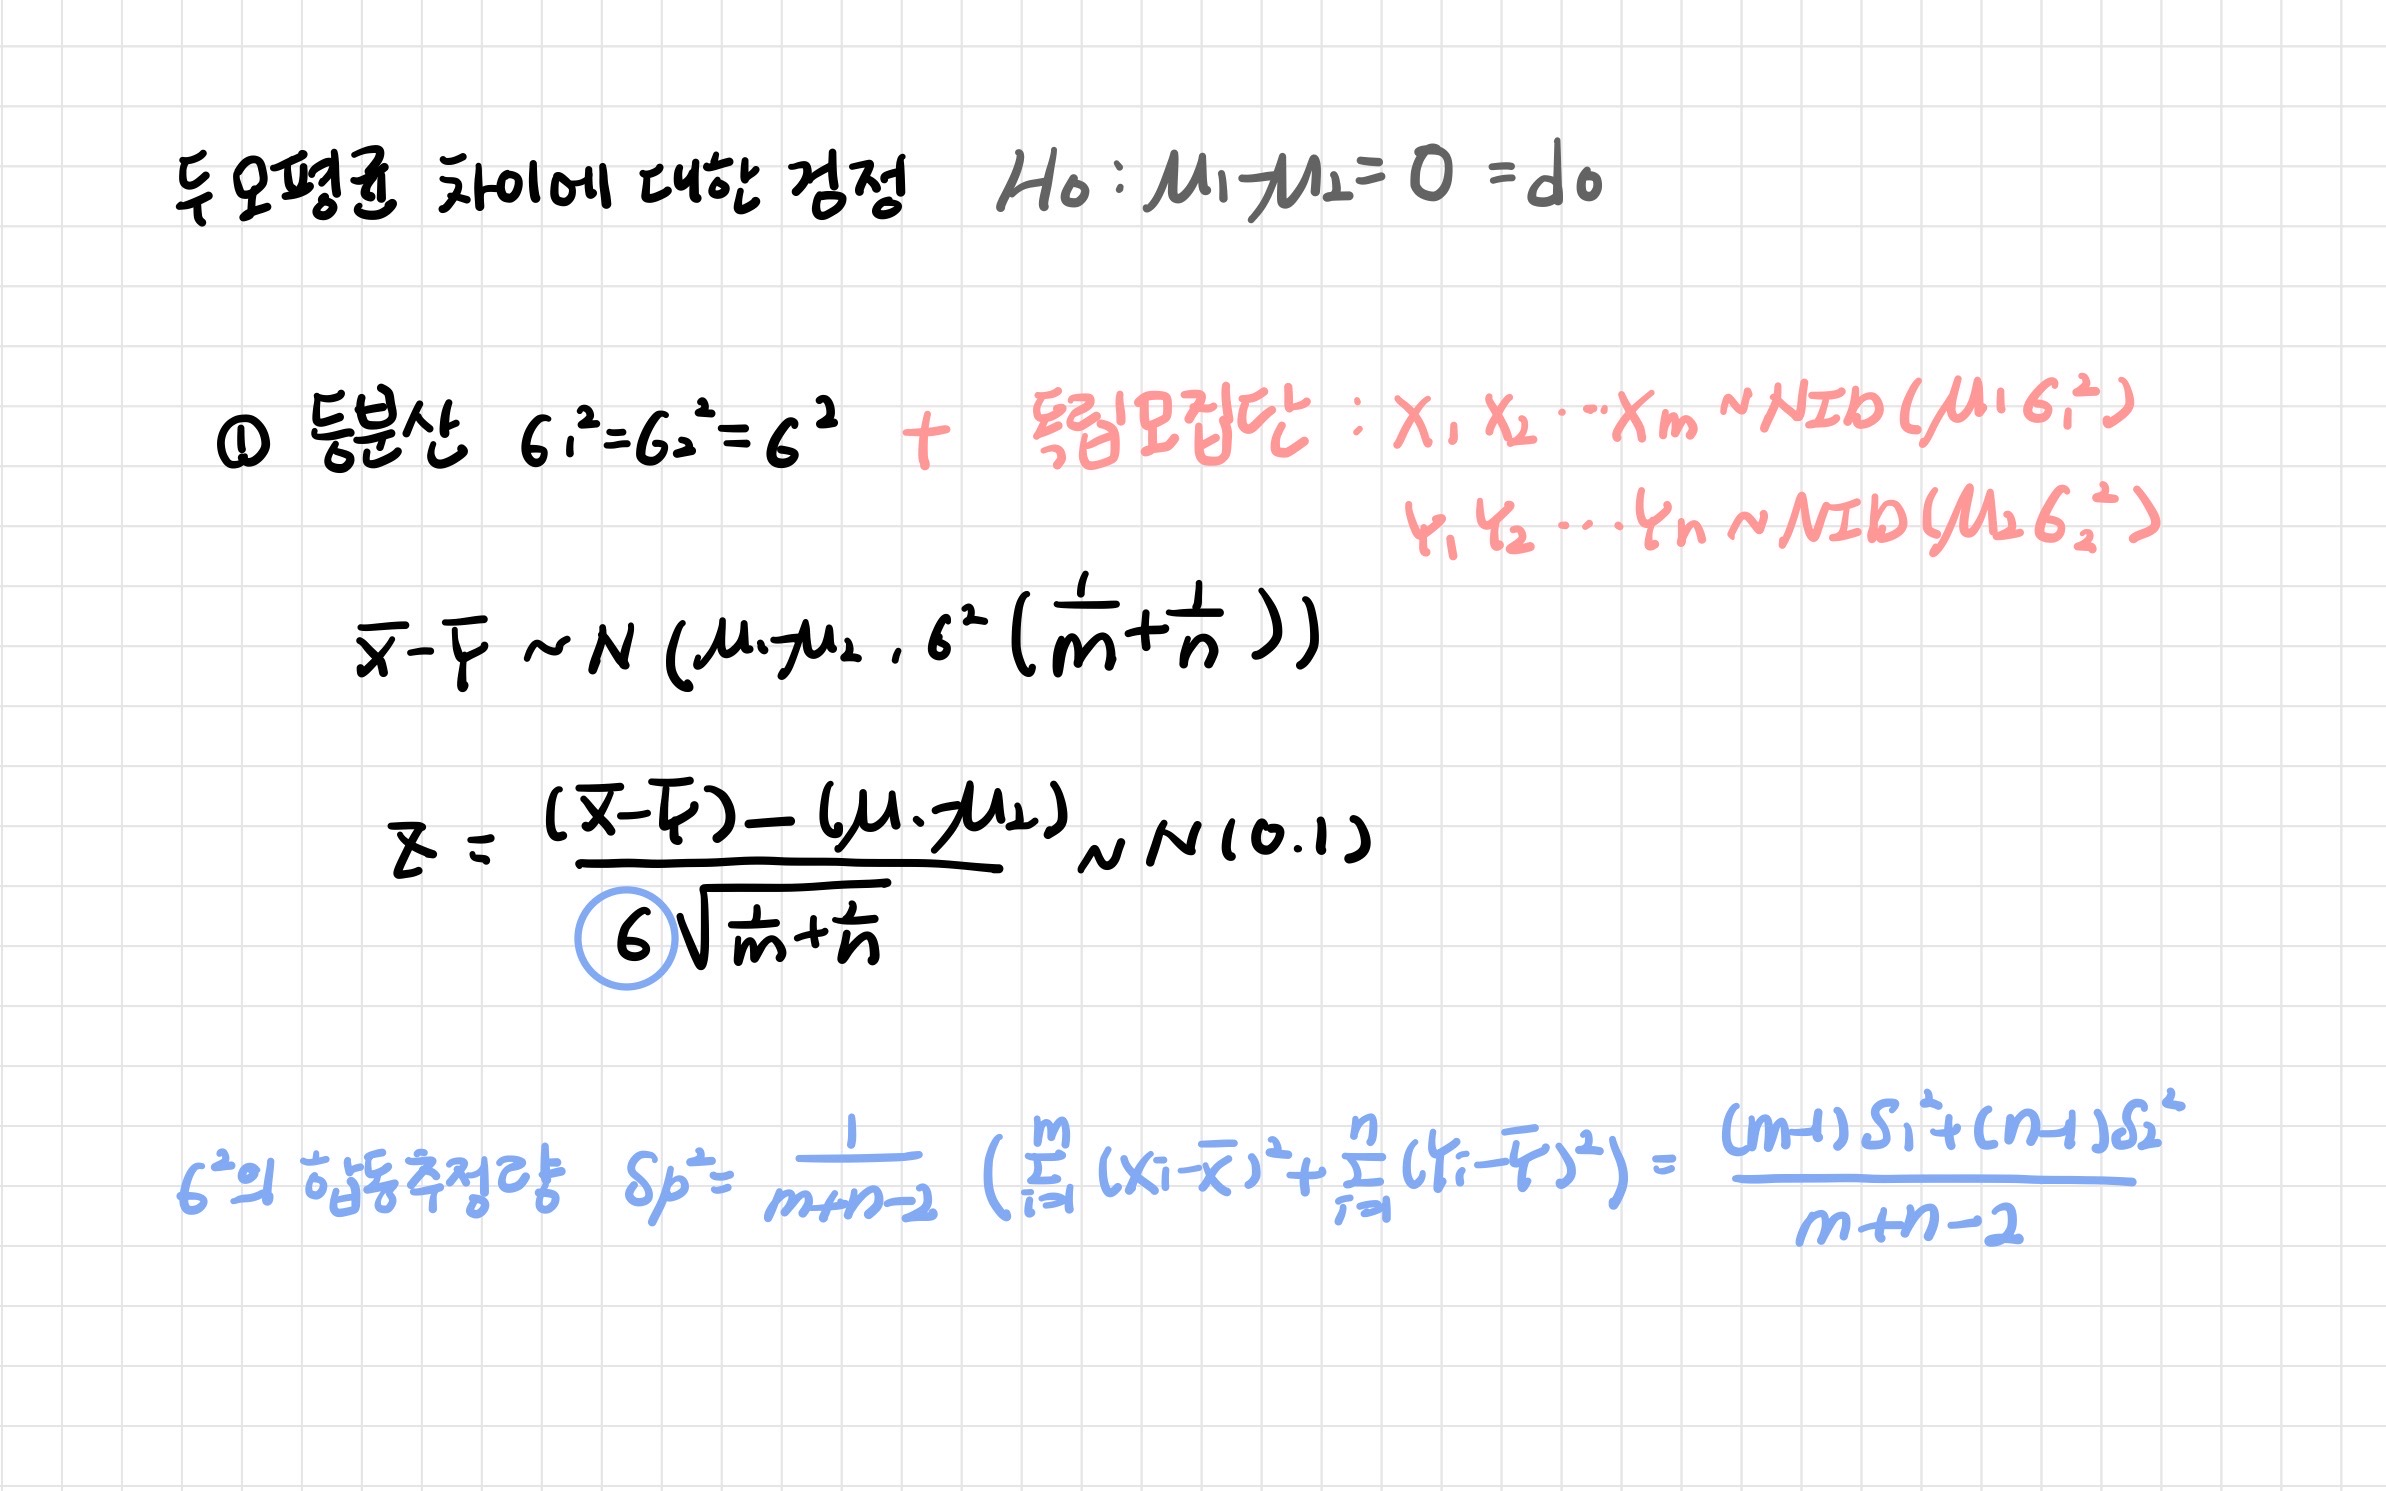 두 모평균 차이에 대한 검정 H₀: μ₁-μ₂ = 0 = d₀
① 등분산 σ₁²=σ₂²=σ² + 독립표본 : X₁ X₂ ... Xm ~ NID(μ₁ σ₁²)
Y₁ Y₂ ... Yn ~ NID(μ₂ σ₂²)
X̄-Ȳ ~ N(μ₁-μ₂, σ²(1/m+1/n))
Z = ((X̄-Ȳ)-(μ₁-μ₂))/(σ√(1/m+1/n)) ~ N(0.1)
σ²의 합동추정량 Sp² = 1/(m+n-2) (∑ᵢ₌₁ᵐ(Xi-X̄)²+∑ᵢ₌₁ⁿ(Yi-Ȳ)²) = ((m-1)S₁²+(n-1)S₂²)/(m+n-2)